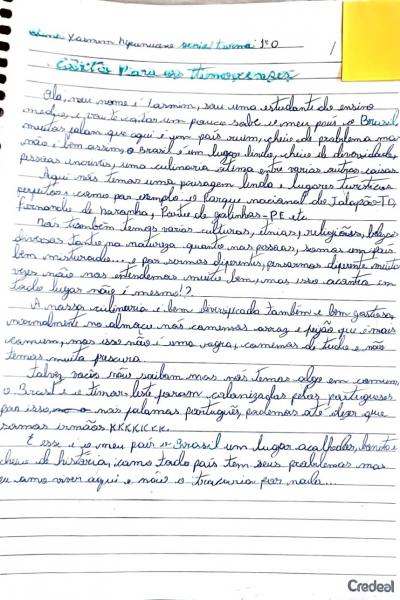 Yasmim Nepumuceno série/turma 1º O
Carta Para os timorenses
Olá, meu nome é Iasmim, sou uma estudante do ensino
medio, e vou te contar um pouco sobre o meu país o Brasil
muitos falam que aqui é um país ruim, cheio de problema mas
não é bem assim, o Brasil é um lugar lindo, cheio de diversidade,
pessoas incríveis, uma culinaria ótima entre varias outras coisas
Aqui nós temos uma paisagem linda e lugares turísticos
perfeitos como por exemplo o Parque nacional de Jalapão-TO,
Fernando de Noronha, Porto de galinhas-PE etc
Nós também temos varias culturas, étnias, religiões, belezas
diversas tanto na natureza quanto nas pessoas, somos um país
bem misturado... e por sermos diferentes, pensarmos diferente muitas
vezes não nos entendemos muito bem, mas isso acontece em
todo lugar não é mesmo!?
A nossa culinaria é bem diversificada também e bem gostosa,
normalmente no almoço nós comemos arroz e feijão que é mais
comum, mas isso não é uma regra, comemos de tudo e não
temos muita frescura.
Talvez vocês não saibam mas nós temos algo em comum,
o Brasil e o timor leste foram colonizados pelos portugueses
por isso nós falamos português, podemos até dizer que
somos irmãos KKKKKKK.
E esse é o meu país o Brasil um lugar acolhedor, bonito e
cheio de história, como todo país tem seus problemas mas
eu amo viver aqui e não o trocaria por nada...
Credeal